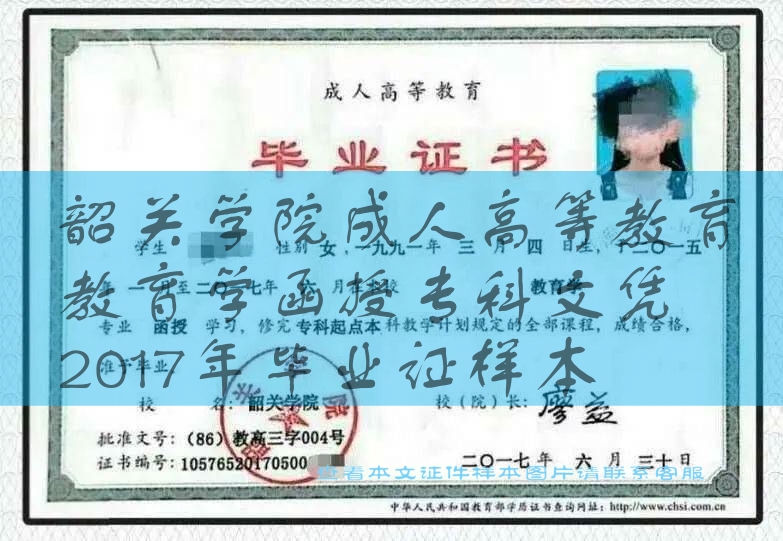 成人高等教育
毕业证书
韶关学院成人高等教育
学生 性别 女，一九九一年 三 月 四 日生，于二〇一五
教育学函授专科文凭
年 一 月至二〇一七年 六 月在本校 教育学
专业 函授 学习，修完 专科起点本 科教学计划规定的全部课程，成绩合格，
2017年毕业证样本
准予毕业。
校 名：韶关学院 校（院）长：廖益
批准文号：（86）教高三字004号
证书编号：10576520170500 二〇一七 年 六 月 三十 日
查看本文证件样本图片请联系客服
中华人民共和国教育部学历证书查询网址：http://www.chsi.com.cn